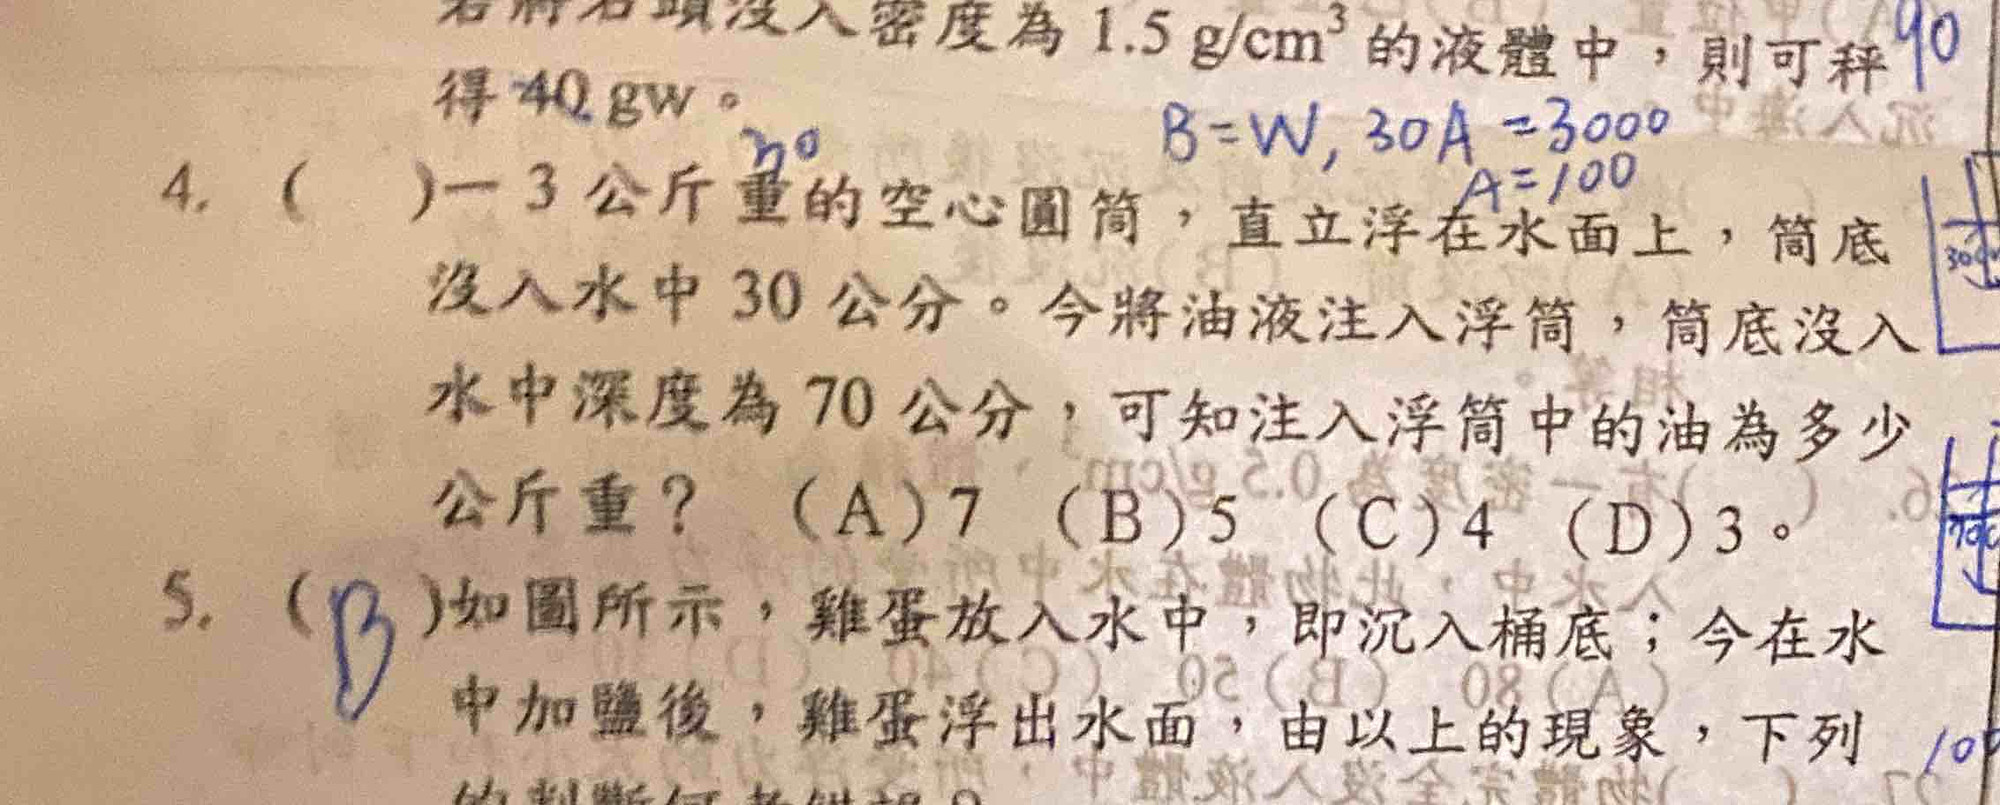 若將石頭沒入密度為 1.5 g/cm³ 的液體中，則可秤
90
得 40 gw。
B=W, 30A =3000
A=100
30
4. (　)一 3 公斤重的空心圓筒，直立浮在水面上，筒底
沒入水中 30 公分。今將油液注入浮筒，筒底沒入
水中深度為 70 公分，可知注入浮筒中的油為多少
公斤重？ (A) 7 (B) 5 (C) 4 (D) 3。
5. (B)如圖所示，雞蛋放入水中，即沉入桶底；今在水
中加鹽後，雞蛋浮出水面，由以上的現象，下列